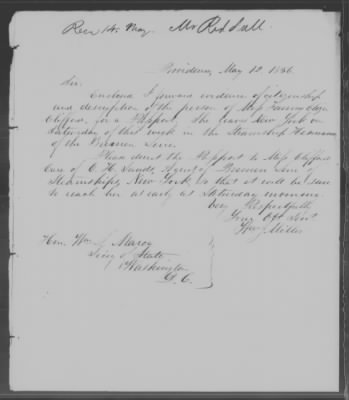 Rec'd 14. May. Mr Reddall
Providence, May 12, 1856.
Sir,
Enclosed I forward evidence of citizenship
and description of the person of Miss Fanny Eliza
Clifford, for a Passport. She leaves New York on
Saturday of this week in the Steamship Hermann
of the Bremen Line.
Please direct the Passport to Miss Clifford
Care of C. H. Sand, Agent of Bremen Line of
Steamships, New York, so that it will be sure
to reach her as early as Saturday morning.
Very Respectfully
Your Obt Servt
Wm J Miller
Hon. Wm. L. Marcy
Secy of State
Washington
D. C.